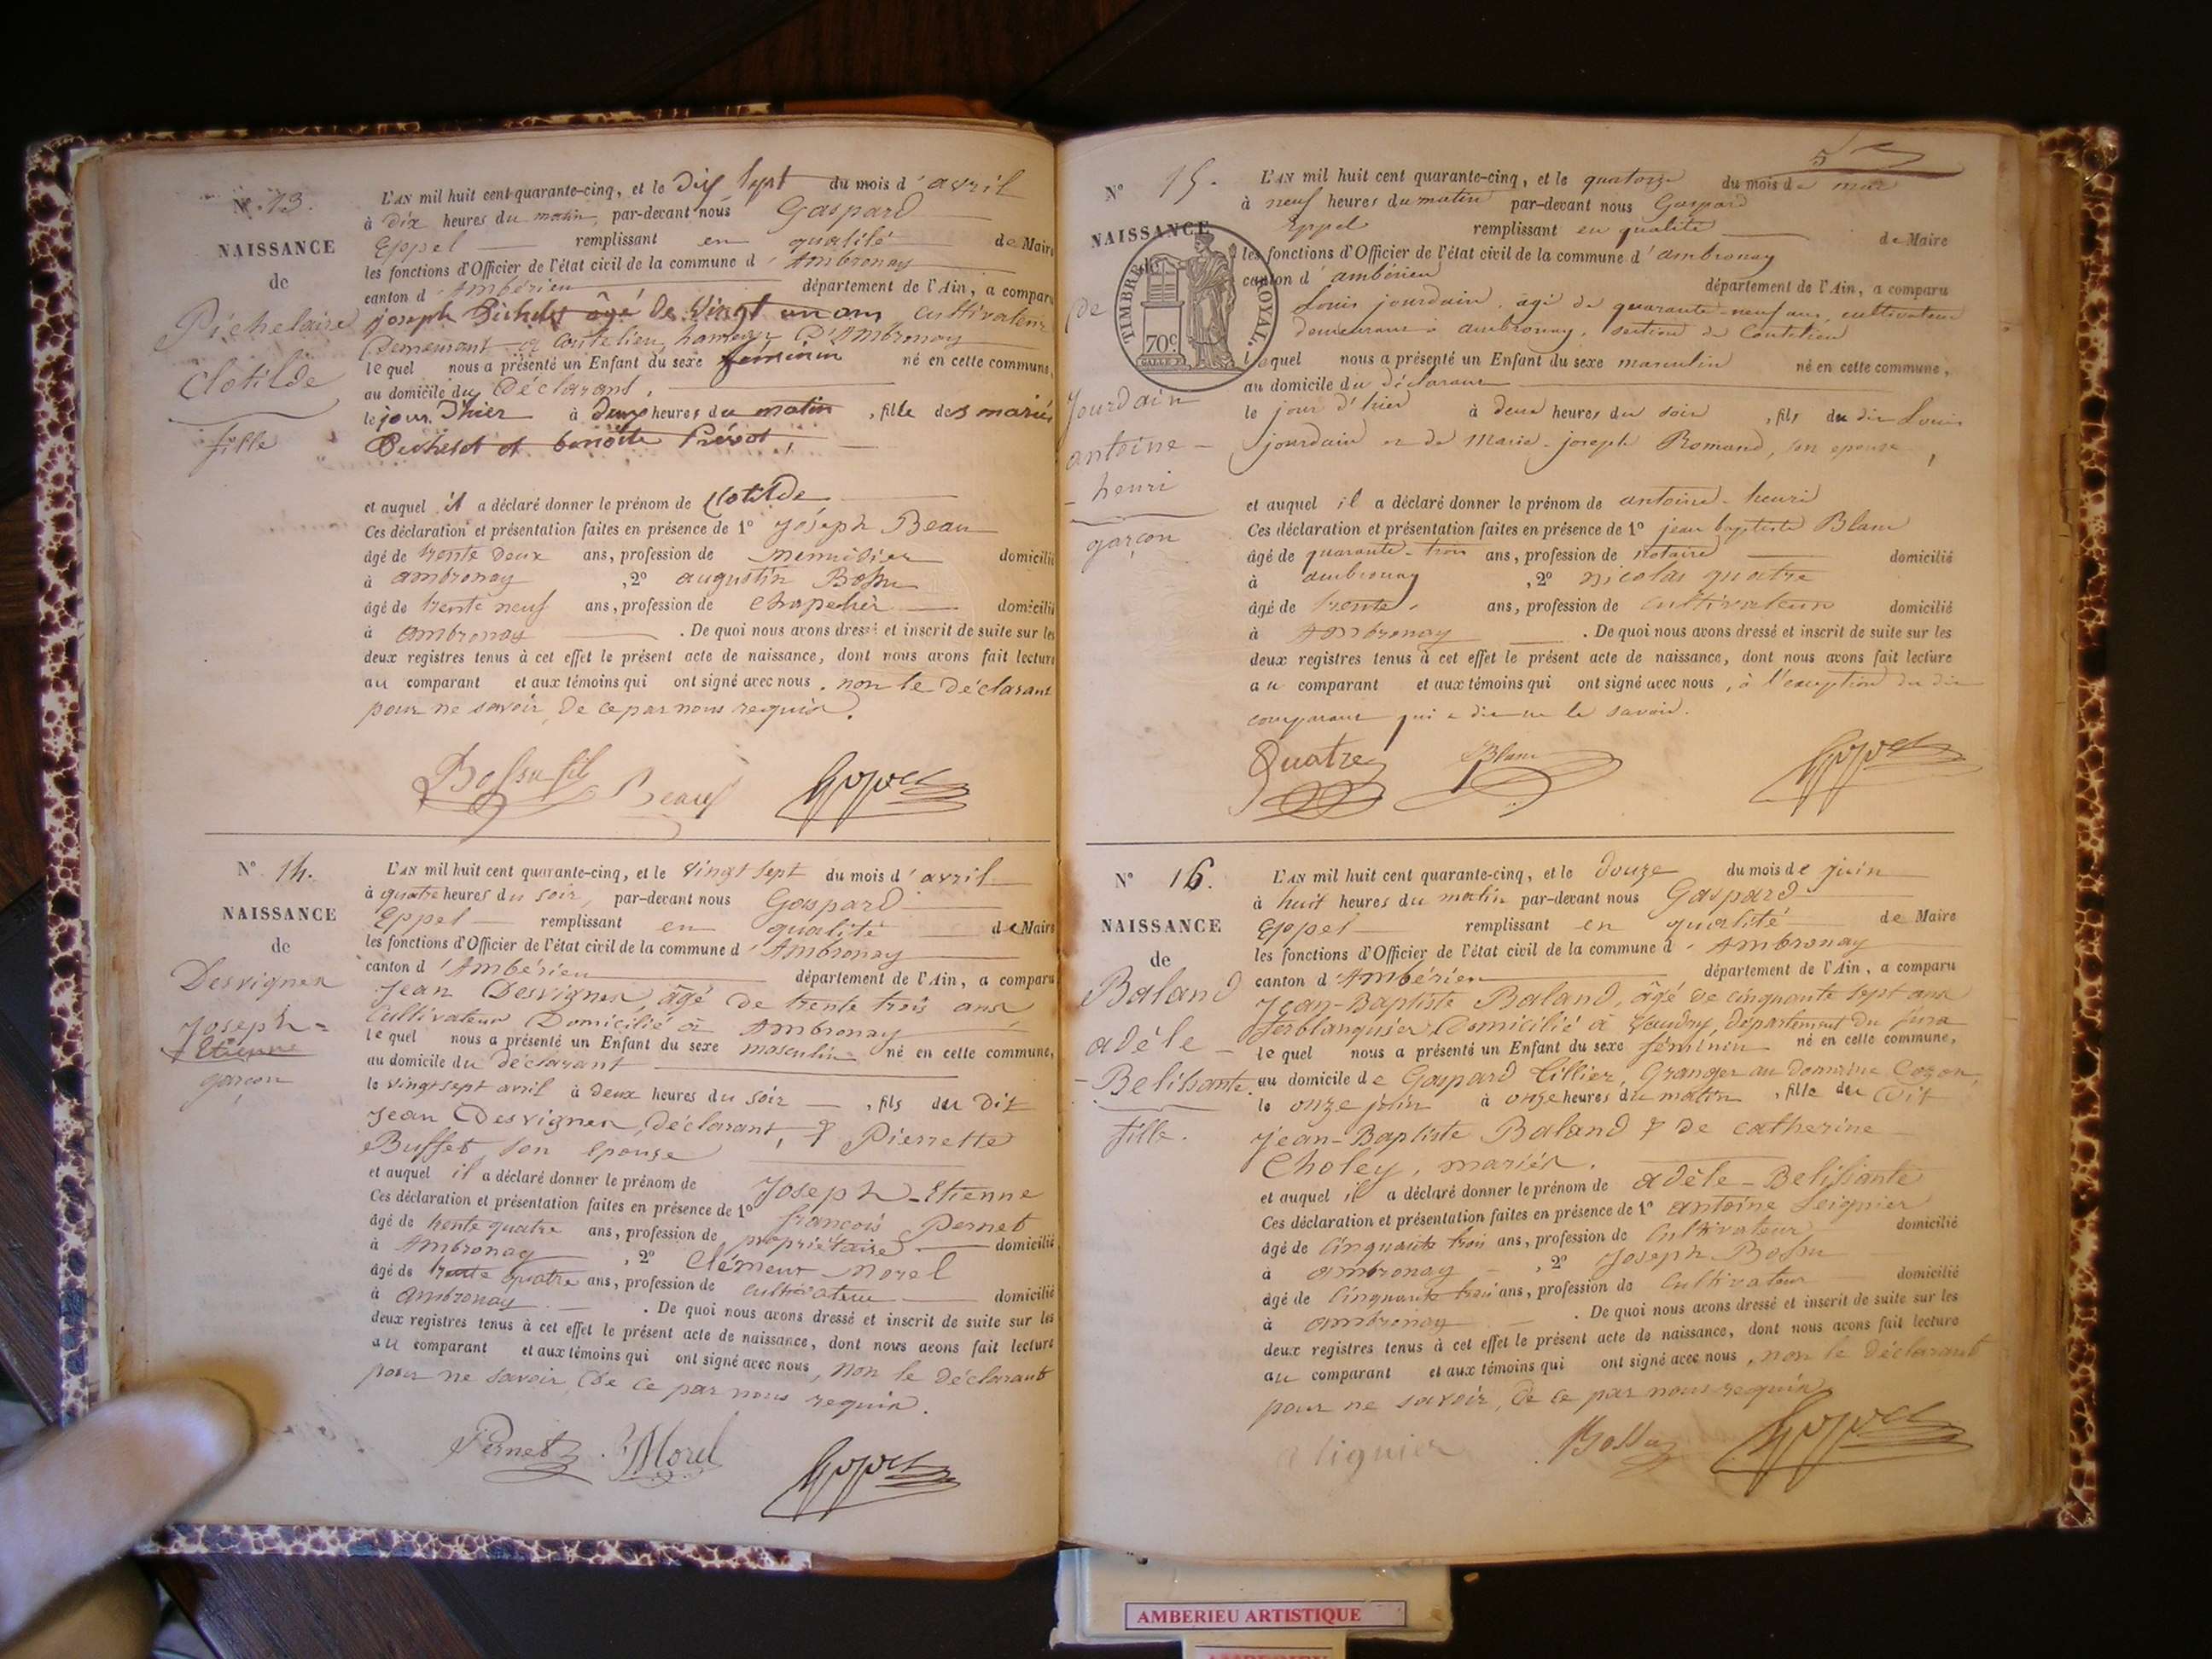 N.° 13.
NAISSANCE
de
Clotilde
fille
L'AN mil huit cent quarante-cinq, et le Dix Sept du mois d'avril
à Dix heures du matin, par-devant nous Gaspard
Eppel remplissant en qualité de Maire
les fonctions d'Officier de l'état civil de la commune d'Ambronay
canton d'Ambérieu département de l'Ain, a comparu
joseph âgé de Vingt un ans cultivateur
Demeurant a Coutelieu, hameau D'Ambronay
lequel nous a présenté un Enfant du sexe feminin né en cette commune,
au domicile du Déclarant,
le jour D'hier à Deux heures du matin, fille des mariés
et benoîte Prévot,
et auquel il a déclaré donner le prénom de Clotilde
Ces déclaration et présentation faites en présence de 1° Joseph Beau
âgé de trente Deux ans, profession de menuisier domicilié
à ambronay, 2° augustin Bossu
âgé de trente neuf ans, profession de domicilié
à ambronay. De quoi nous avons dressé et inscrit de suite sur les
deux registres tenus à cet effet le présent acte de naissance, dont nous avons fait lecture
au comparant et aux témoins qui ont signé avec nous, non le Déclarant
pour ne savoir, de ce par nous requis.
Bossu fils Beau Eppel
N° 14.
NAISSANCE
de
Desvignes
Joseph=
Etienne
garçon
L'AN mil huit cent quarante-cinq, et le Vingt Sept du mois d'avril
à quatre heures du soir, par-devant nous Gaspard
Eppel remplissant en qualité de Maire
les fonctions d'Officier de l'état civil de la commune d'Ambronay
canton d'Ambérieu département de l'Ain, a comparu
Jean Desvignes, âgé de trente trois ans
Cultivateur Domicilié à Ambronay
lequel nous a présenté un Enfant du sexe masculin né en cette commune,
au domicile du déclarant
le vingt sept avril à deux heures du soir, fils du Dit
Jean Desvignes, déclarant, & Pierrette
Buffet, son épouse
et auquel il a déclaré donner le prénom de Joseph-Etienne
Ces déclaration et présentation faites en présence de 1° françois Pernet
âgé de trente quatre ans, profession de propriétaire domicilié
à Ambronay, 2° Clément Morel
âgé de trente quatre ans, profession de Cultivateur domicilié
à ambronay. De quoi nous avons dressé et inscrit de suite sur les
deux registres tenus à cet effet le présent acte de naissance, dont nous avons fait lecture
au comparant et aux témoins qui ont signé avec nous, non le déclarant
pour ne savoir, de ce par nous requis.
Pernet Morel Eppel
5
N° 15.
NAISSANCE
de
TIMBRE ROYAL.
70c
Jourdain
antoine-
henri
garçon
L'AN mil huit cent quarante-cinq, et le quatorze du mois de mai
à neuf heures du matin par-devant nous Gaspard
Eppel remplissant en qualité de Maire
les fonctions d'Officier de l'état civil de la commune d'ambronay
canton d'ambérieu département de l'Ain, a comparu
Louis jourdain, âgé de quarante-neuf ans, cultivateur
demeurant à ambronay, section de Coutelieu
lequel nous a présenté un Enfant du sexe masculin né en cette commune,
au domicile du déclarant
le jour d'hier à deux heures du soir, fils du dit Louis
jourdain et de Marie-joseph Romand, son epouse,
et auquel il a déclaré donner le prénom de antoine-henri
Ces déclaration et présentation faites en présence de 1° jean baptiste Blanc
âgé de quarante-trois ans, profession de notaire domicilié
à ambronay, 2° nicolas quatre
âgé de trente, ans, profession de cultivateur domicilié
à Ambronay. De quoi nous avons dressé et inscrit de suite sur les
deux registres tenus à cet effet le présent acte de naissance, dont nous avons fait lecture
au comparant et aux témoins qui ont signé avec nous, à l'exception du dit
comparant qui a dit ne le savoir.
Quatre Blanc Eppel
N° 16.
NAISSANCE
de
Baland
adèle-
Belissante.
fille.
L'AN mil huit cent quarante-cinq, et le douze du mois de juin
à huit heures du matin par-devant nous Gaspard
Eppel remplissant en qualité de Maire
les fonctions d'Officier de l'état civil de la commune d'Ambronay
canton d'Ambérieu département de l'Ain, a comparu
Jean-Baptiste Baland, âgé de cinquante sept ans
ferblanquier Domicilié à Vaudry, département du jura
lequel nous a présenté un Enfant du sexe féminin né en cette commune,
au domicile de Gaspard Tillier, Granger au domaine Cozon,
le onze juin à onze heures du matin, fille du dit
Jean-Baptiste Baland & de catherine
Choley, mariés.
et auquel il a déclaré donner le prénom de adèle-Belissante
Ces déclaration et présentation faites en présence de 1° antoine Leignier
âgé de cinquante trois ans, profession de Cultivateur domicilié
à ambronay, 2° Joseph Bossu
âgé de cinquante trois ans, profession de cultivateur domicilié
à ambronay. De quoi nous avons dressé et inscrit de suite sur les
deux registres tenus à cet effet le présent acte de naissance, dont nous avons fait lecture
au comparant et aux témoins qui ont signé avec nous, non le déclarant
pour ne savoir, de ce par nous requis
Bossu Eppel
AMBERIEU ARTISTIQUE